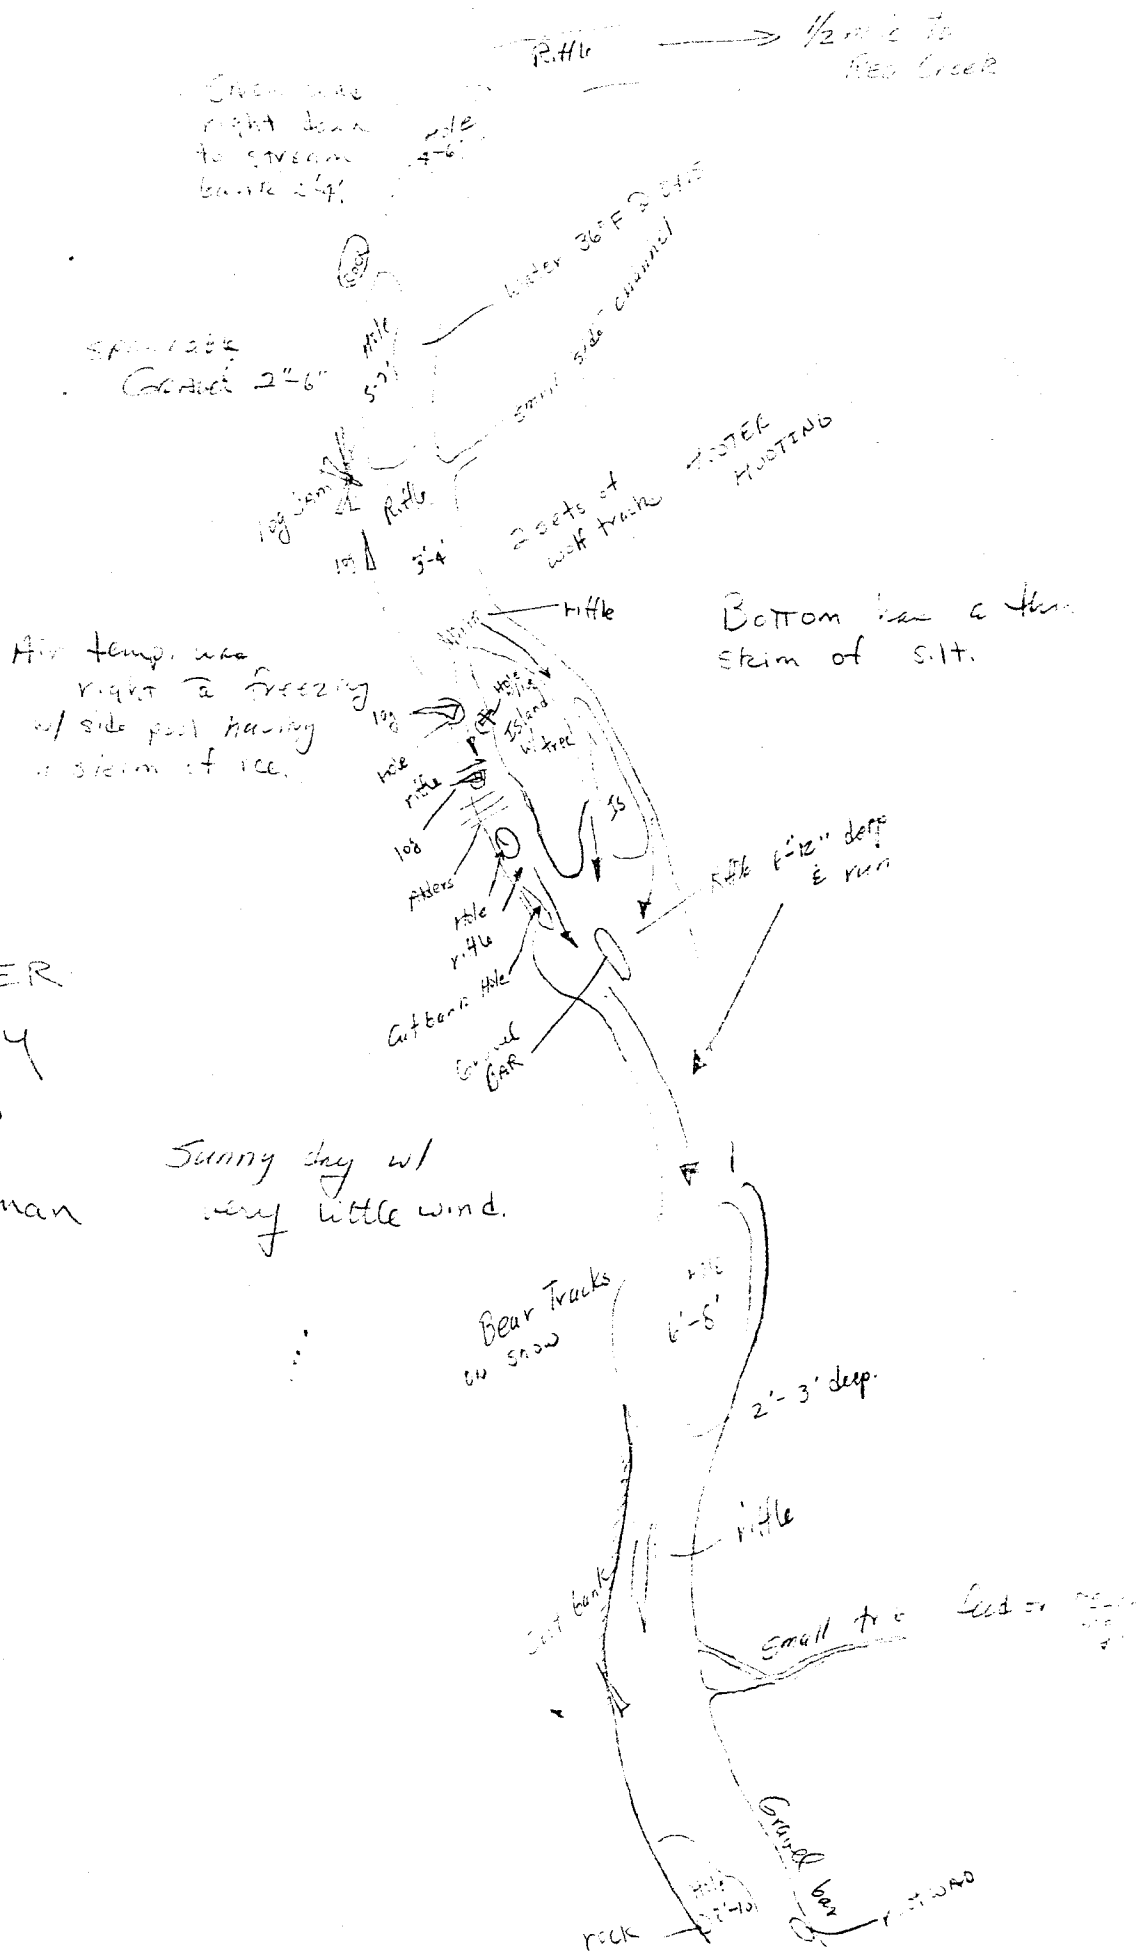 Riffle
1/2 mile to
Red Creek
Snow
right down
to stream
bank 2'-4'
Hole
4'-6'
Water 36°F @
small side channel
Hole
5-7'
Gravel 2"-6"
log jam
Riffle
log
3'-4'
2 sets of
wolf track
HOOTER
HOOTING
riffle
Bottom has a thin
skim of silt.
Air temp. was
right @ freezing
w/ side pool having
a skim of ice.
log
Hole
Island
w/ tree
Hole
riffle
log
Is
Alders
Hole
riffle
Cutbank Hole
Gravel
BAR
Riffle 6"-12" deep
& run
ER
Y
man
Sunny day w/
very little wind.
Bear Tracks
on snow
Hole
6'-8'
2'-3' deep.
riffle
bank
Small trib
Gravel bar
Hole
rock
rootwad